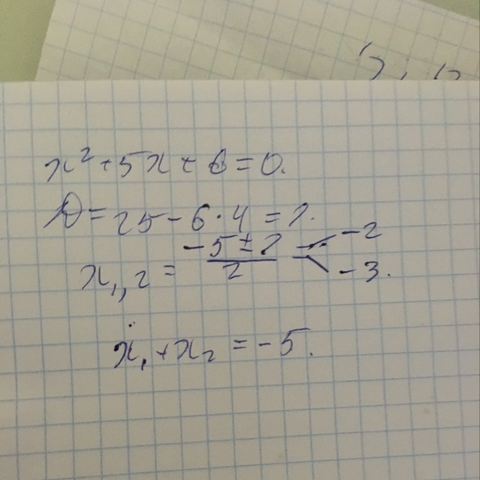 x² + 5x + 6 = 0.
D = 25 - 6·4 = 1.
x₁,₂ = (-5 ± 1)/2 = -2
-3.
x₁ + x₂ = -5.